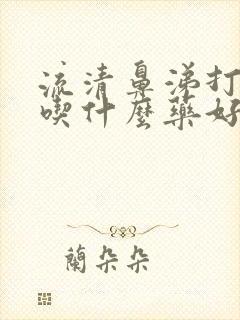 流清鼻涕打
喫什麼藥好
蘭朵朵